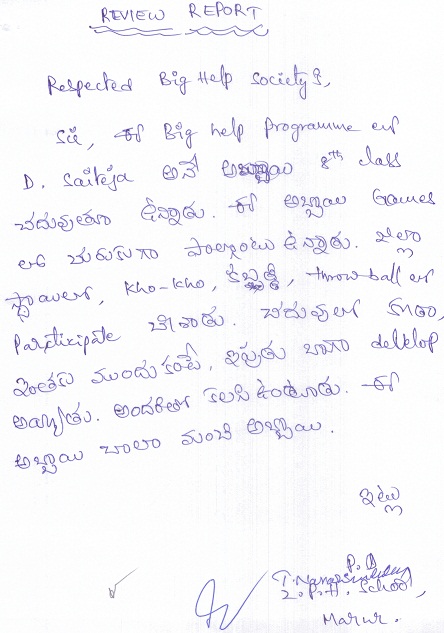 REVIEW REPORT
Respected Big Help Society &,
Sir, ఈ Big help Programme లో
D. Saiteja అనే అబ్బాయి 8th class
చదువుతూ ఉన్నాడు. ఈ అబ్బాయి Games
లో చురుకుగా పాల్గొంటు ఉన్నాడు. జిల్లా
స్థాయిలో, Kho-kho, కబడ్డీ, throw ball లో
Participate చేశాడు. చదువులో కూడా,
ఇంతకు ముందుకంటే, ఇప్పుడు బాగా devellop
అయ్యాడు. అందరితో కలసి ఉంటాడు. ఈ
అబ్బాయి చాలా మంచి అబ్బాయి.
ఇట్లు
P.D
Z.P.H. School,
Marur.